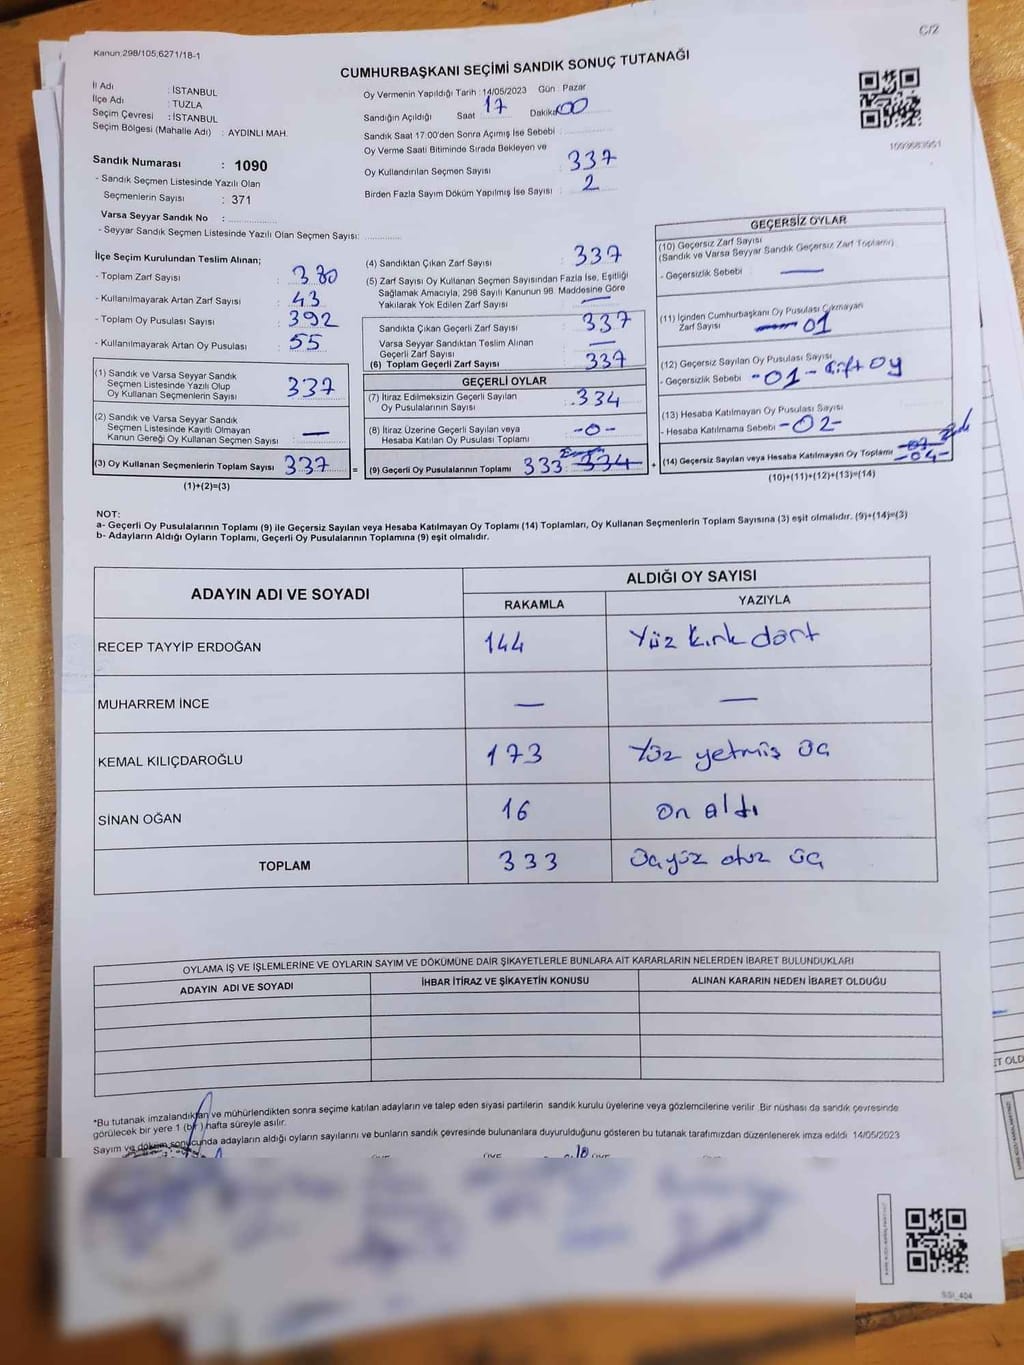 C/2
Kanun;298/105;6271/18-1
CUMHURBAŞKANI SEÇİMİ SANDIK SONUÇ TUTANAĞI
İl Adı : İSTANBUL
İlçe Adı : TUZLA
Seçim Çevresi : İSTANBUL
Seçim Bölgesi (Mahalle Adı) : AYDINLI MAH.
Oy Vermenin Yapıldığı Tarih : 14/05/2023 Gün : Pazar
Sandığın Açıldığı Saat 17 Dakika 00
Sandık Saat 17:00'den Sonra Açımış İse Sebebi
Oy Verme Saati Bitiminde Sırada Bekleyen ve
Oy Kullandırılan Seçmen Sayısı 337
Birden Fazla Sayım Döküm Yapılmış İse Sayısı 2
1093683951
Sandık Numarası : 1090
- Sandık Seçmen Listesinde Yazılı Olan
Seçmenlerin Sayısı : 371
Varsa Seyyar Sandık No :
- Seyyar Sandık Seçmen Listesinde Yazılı Olan Seçmen Sayısı:
İlçe Seçim Kurulundan Teslim Alınan;
- Toplam Zarf Sayısı : 380
- Kullanılmayarak Artan Zarf Sayısı : 43
- Toplam Oy Pusulası Sayısı : 392
- Kullanılmayarak Artan Oy Pusulası : 55
(1) Sandık ve Varsa Seyyar Sandık
Seçmen Listesinde Yazılı Olup
Oy Kullanan Seçmenlerin Sayısı 337
(2) Sandık ve Varsa Seyyar Sandık
Seçmen Listesinde Kayıtlı Olmayan
Kanun Gereği Oy Kullanan Seçmen Sayısı —
(3) Oy Kullanan Seçmenlerin Toplam Sayısı 337 =
(1)+(2)=(3)
(4) Sandıktan Çıkan Zarf Sayısı : 337
(5) Zarf Sayısı Oy Kullanan Seçmen Sayısından Fazla İse, Eşitliği
Sağlamak Amacıyla, 298 Sayılı Kanunun 98. Maddesine Göre
Yakılarak Yok Edilen Zarf Sayısı —
Sandıkta Çıkan Geçerli Zarf Sayısı 337
Varsa Seyyar Sandıktan Teslim Alınan
Geçerli Zarf Sayısı —
(6) Toplam Geçerli Zarf Sayısı 337
GEÇERLİ OYLAR
(7) İtiraz Edilmeksizin Geçerli Sayılan
Oy Pusulasının Sayısı 334
(8) İtiraz Üzerine Geçerli Sayılan veya
Hesaba Katılan Oy Pusulası Toplamı -0-
(9) Geçerli Oy Pusulalarının Toplamı 333 334 +
GEÇERSİZ OYLAR
(10) Geçersiz Zarf Sayısı
(Sandık ve Varsa Seyyar Sandık Geçersiz Zarf Toplamı)
- Geçersizlik Sebebi —
(11) İçinden Cumhurbaşkanı Oy Pusulası Çıkmayan
Zarf Sayısı 01
(12) Geçersiz Sayılan Oy Pusulası Sayısı
- Geçersizlik Sebebi -01- Çift Oy
(13) Hesaba Katılmayan Oy Pusulası Sayısı
- Hesaba Katılmama Sebebi -02-
(14) Geçersiz Sayılan veya Hesaba Katılmayan Oy Toplamı -03- -04-
(10)+(11)+(12)+(13)=(14)
NOT:
a- Geçerli Oy Pusulalarının Toplamı (9) ile Geçersiz Sayılan veya Hesaba Katılmayan Oy Toplamı (14) Toplamları, Oy Kullanan Seçmenlerin Toplam Sayısına (3) eşit olmalıdır. (9)+(14)=(3)
b- Adayların Aldığı Oyların Toplamı, Geçerli Oy Pusulalarının Toplamına (9) eşit olmalıdır.
ADAYIN ADI VE SOYADI ALDIĞI OY SAYISI
RAKAMLA YAZIYLA
RECEP TAYYİP ERDOĞAN 144 Yüz kırk dört
MUHARREM İNCE — —
KEMAL KILIÇDAROĞLU 173 Yüz yetmiş üç
SİNAN OĞAN 16 on altı
TOPLAM 333 üçyüz otuz üç
OYLAMA İŞ VE İŞLEMLERİNE VE OYLARIN SAYIM VE DÖKÜMÜNE DAİR ŞİKAYETLERLE BUNLARA AİT KARARLARIN NELERDEN İBARET BULUNDUKLARI
ADAYIN ADI VE SOYADI İHBAR İTİRAZ VE ŞİKAYETİN KONUSU ALINAN KARARIN NEDEN İBARET OLDUĞU
*Bu tutanak imzalandıktan ve mühürlendikten sonra seçime katılan adayların ve talep eden siyasi partilerin sandık kurulu üyelerine veya gözlemcilerine verilir. Bir nüshası da sandık çevresinde
görülecek bir yere 1 (bir) hafta süreyle asılır.
Sayım ve döküm sonucunda adayların aldığı oyların sayılarını ve bunların sandık çevresinde bulunanlara duyurulduğunu gösteren bu tutanak tarafımızdan düzenlenerek imza edildi. 14/05/2023
SSI_404
ET OLD